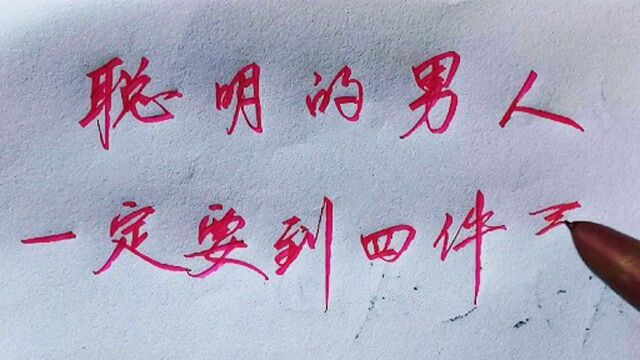 聪明的男人
一定要到四件